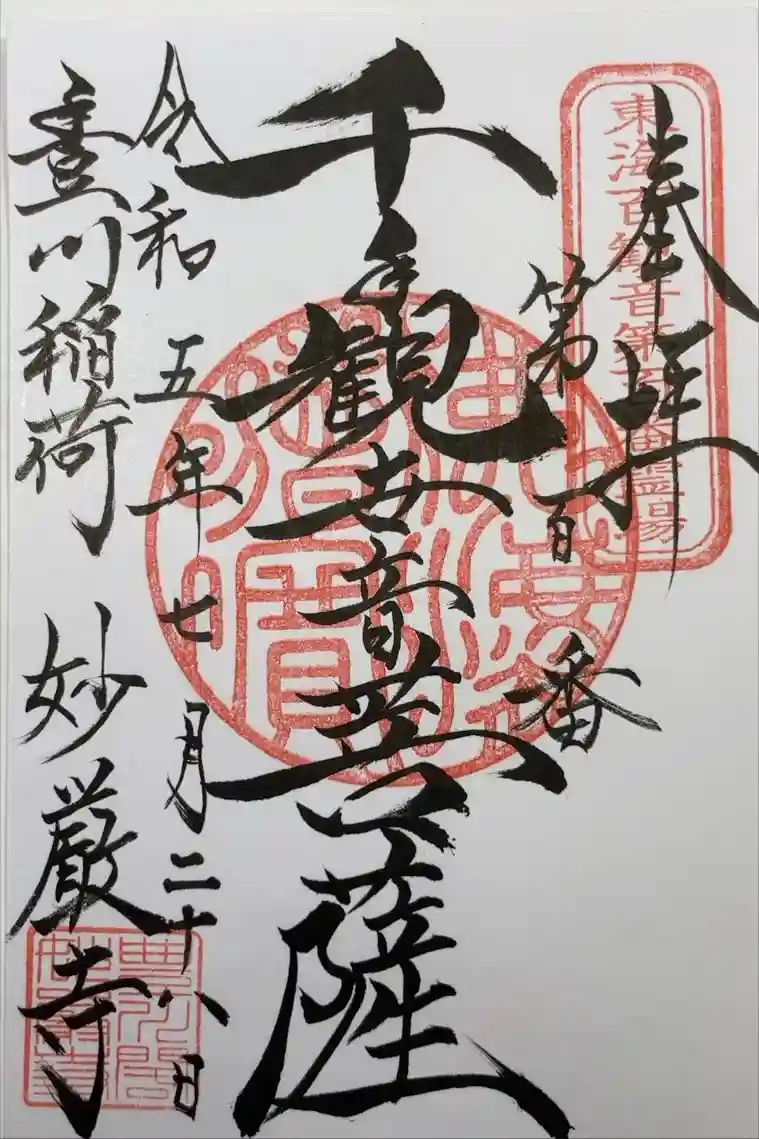 奉拝
東海百観音第百番霊場
第百番
千手観世音菩薩
令和五年七月二十八日
豊川稲荷 妙厳寺